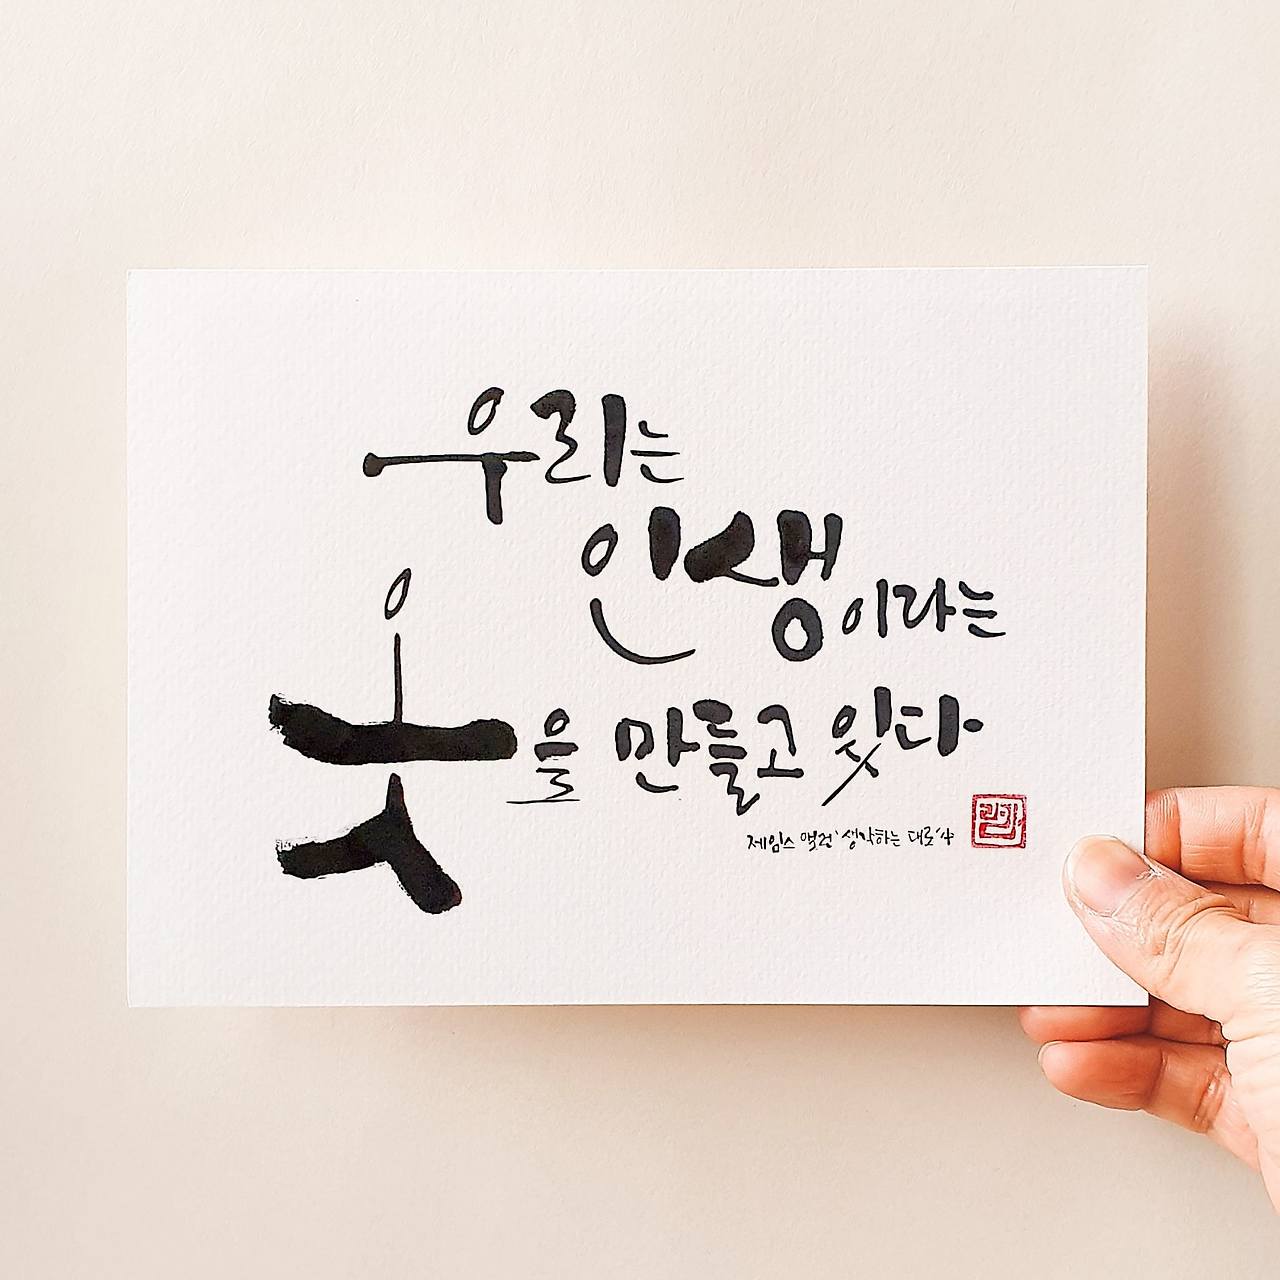 우리는
인생이라는
옷을 만들고 있다
제임스 앨런 '생각하는 대로' 中